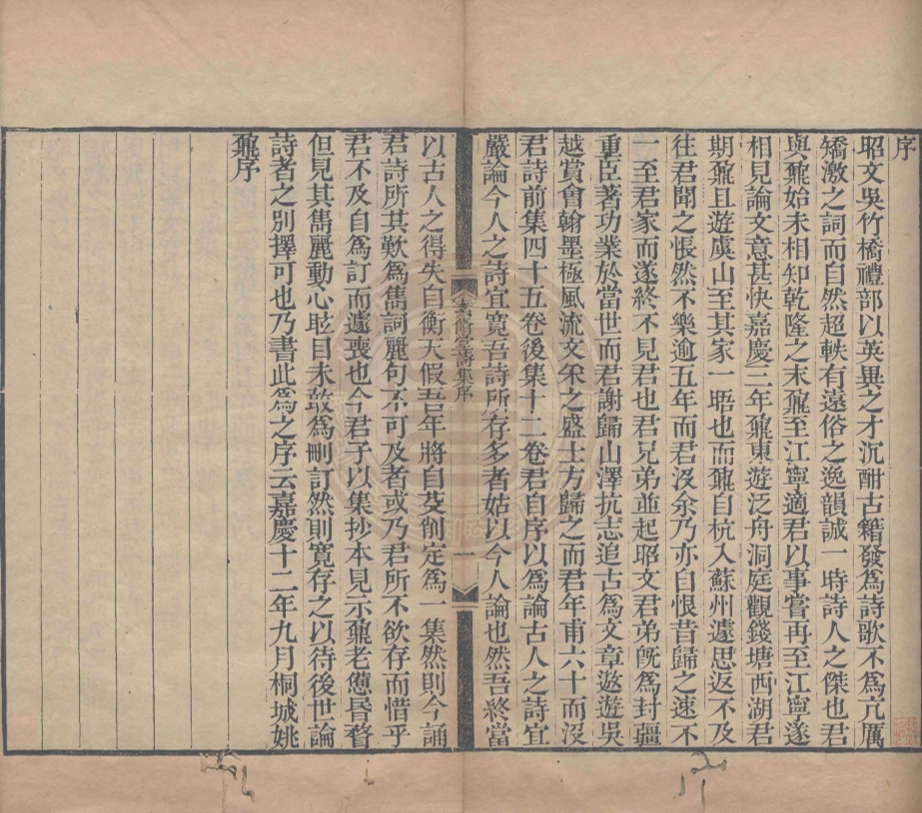 序
昭文吳竹橋禮部以英異之才沉酣古籍發爲詩歌不爲亢厲
矯激之詞而自然超軼有遠俗之逸韻誠一時詩人之傑也君
與鼐始未相知乾隆之末鼐至江寧適君以事嘗再至江寧遂
相見論文意甚快嘉慶三年鼐東遊泛舟洞庭觀錢塘西湖君
期鼐且遊虞山至其家一晤也而鼐自杭入蘇州遽思返不及
往君聞之悵然不樂逾五年而君沒余乃亦自恨昔歸之速不
一至君家而遂終不見君也君兄弟並起昭文君弟旣爲封疆
重臣著功業於當世而君謝歸山澤抗志追古爲文章遨遊吳
越賞會翰墨極風流文采之盛士方歸之而君年甫六十而沒
君詩前集四十五卷後集十二卷君自序以爲論古人之詩宜
嚴論今人之詩宜寬吾詩所存多者姑以今人論也然吾終當
詩集序
一
以古人之得失自衡天假吾年將自芟削定爲一集然則今誦
君詩所其歎爲雋詞麗句不可及者或乃君所不欲存而惜乎
君不及自爲訂而遽喪也今君子以集抄本見示鼐老憊昏瞀
但見其雋麗動心眩目未敢爲刪訂然則寬存之以待後世論
詩者之別擇可也乃書此爲之序云嘉慶十二年九月桐城姚
鼐序